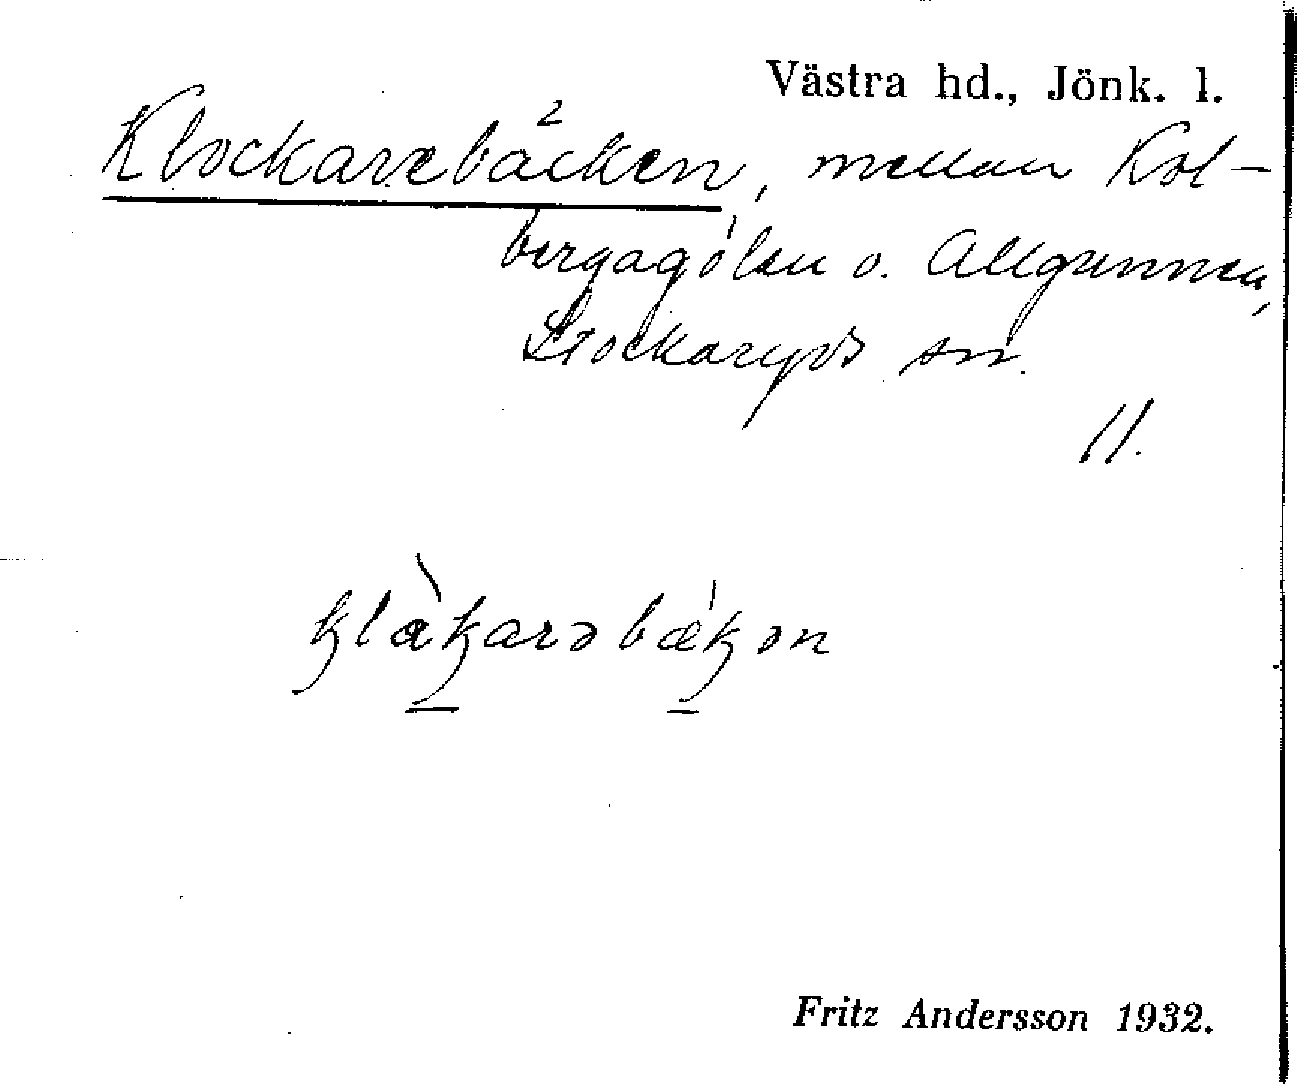 Västra hd., Jönk. l.
Klockarebäcken, mellan Kol-
bergagölen o. Allgunnen,
Stockaryds sn.
11.
klàkarəbækən
Fritz Andersson 1932.